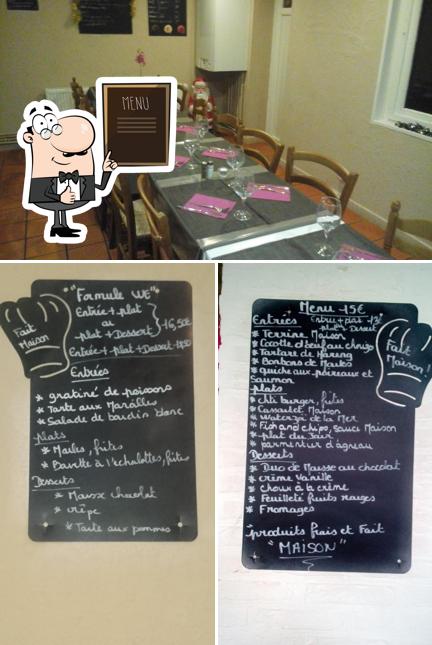 MENU
"Formule WE"
Entrée + plat
ou
plat + Dessert
16,50€
Entrée + plat + Dessert
Fait
Maison
Entrées
* gratiné de poissons
* Tarte aux Maroilles
* Salade de boudin blanc
plats
* Moules, frites
* Bavette à l'échalottes, frites
Desserts
* chocolat
* crêpe
* Tarte aux pommes
Menu 15€
Entrées Entrée + plat 13€
plat Dessert
* Terrine Maison
* Cocotte d'œuf au chorizo
* Tartare de Hareng
* Bonbons de Maroilles
* quiche aux poireaux et
Saumon
Fait
Maison !
plats
* chti burger, frites
* Cassoulet Maison
* Waterzoï de la Mer
* Fish and chips, sauce Maison
* plat du jour
* parmentier d'agneau
Desserts
* Duo de Mousse au chocolat
* crème Vanille
* choux à la crème
* Feuilleté fruits rouges
* Fromages
produits frais et Fait
"MAISON"